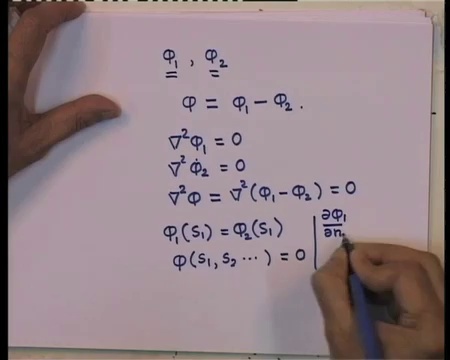 φ₁ , φ₂
φ = φ₁ − φ₂ .
∇²φ₁ = 0
∇²φ₂ = 0
∇²φ = ∇²(φ₁ − φ₂) = 0
φ₁(S₁) = φ₂(S₁)
φ(S₁, S₂ ⋯) = 0
∂φ₁
∂n